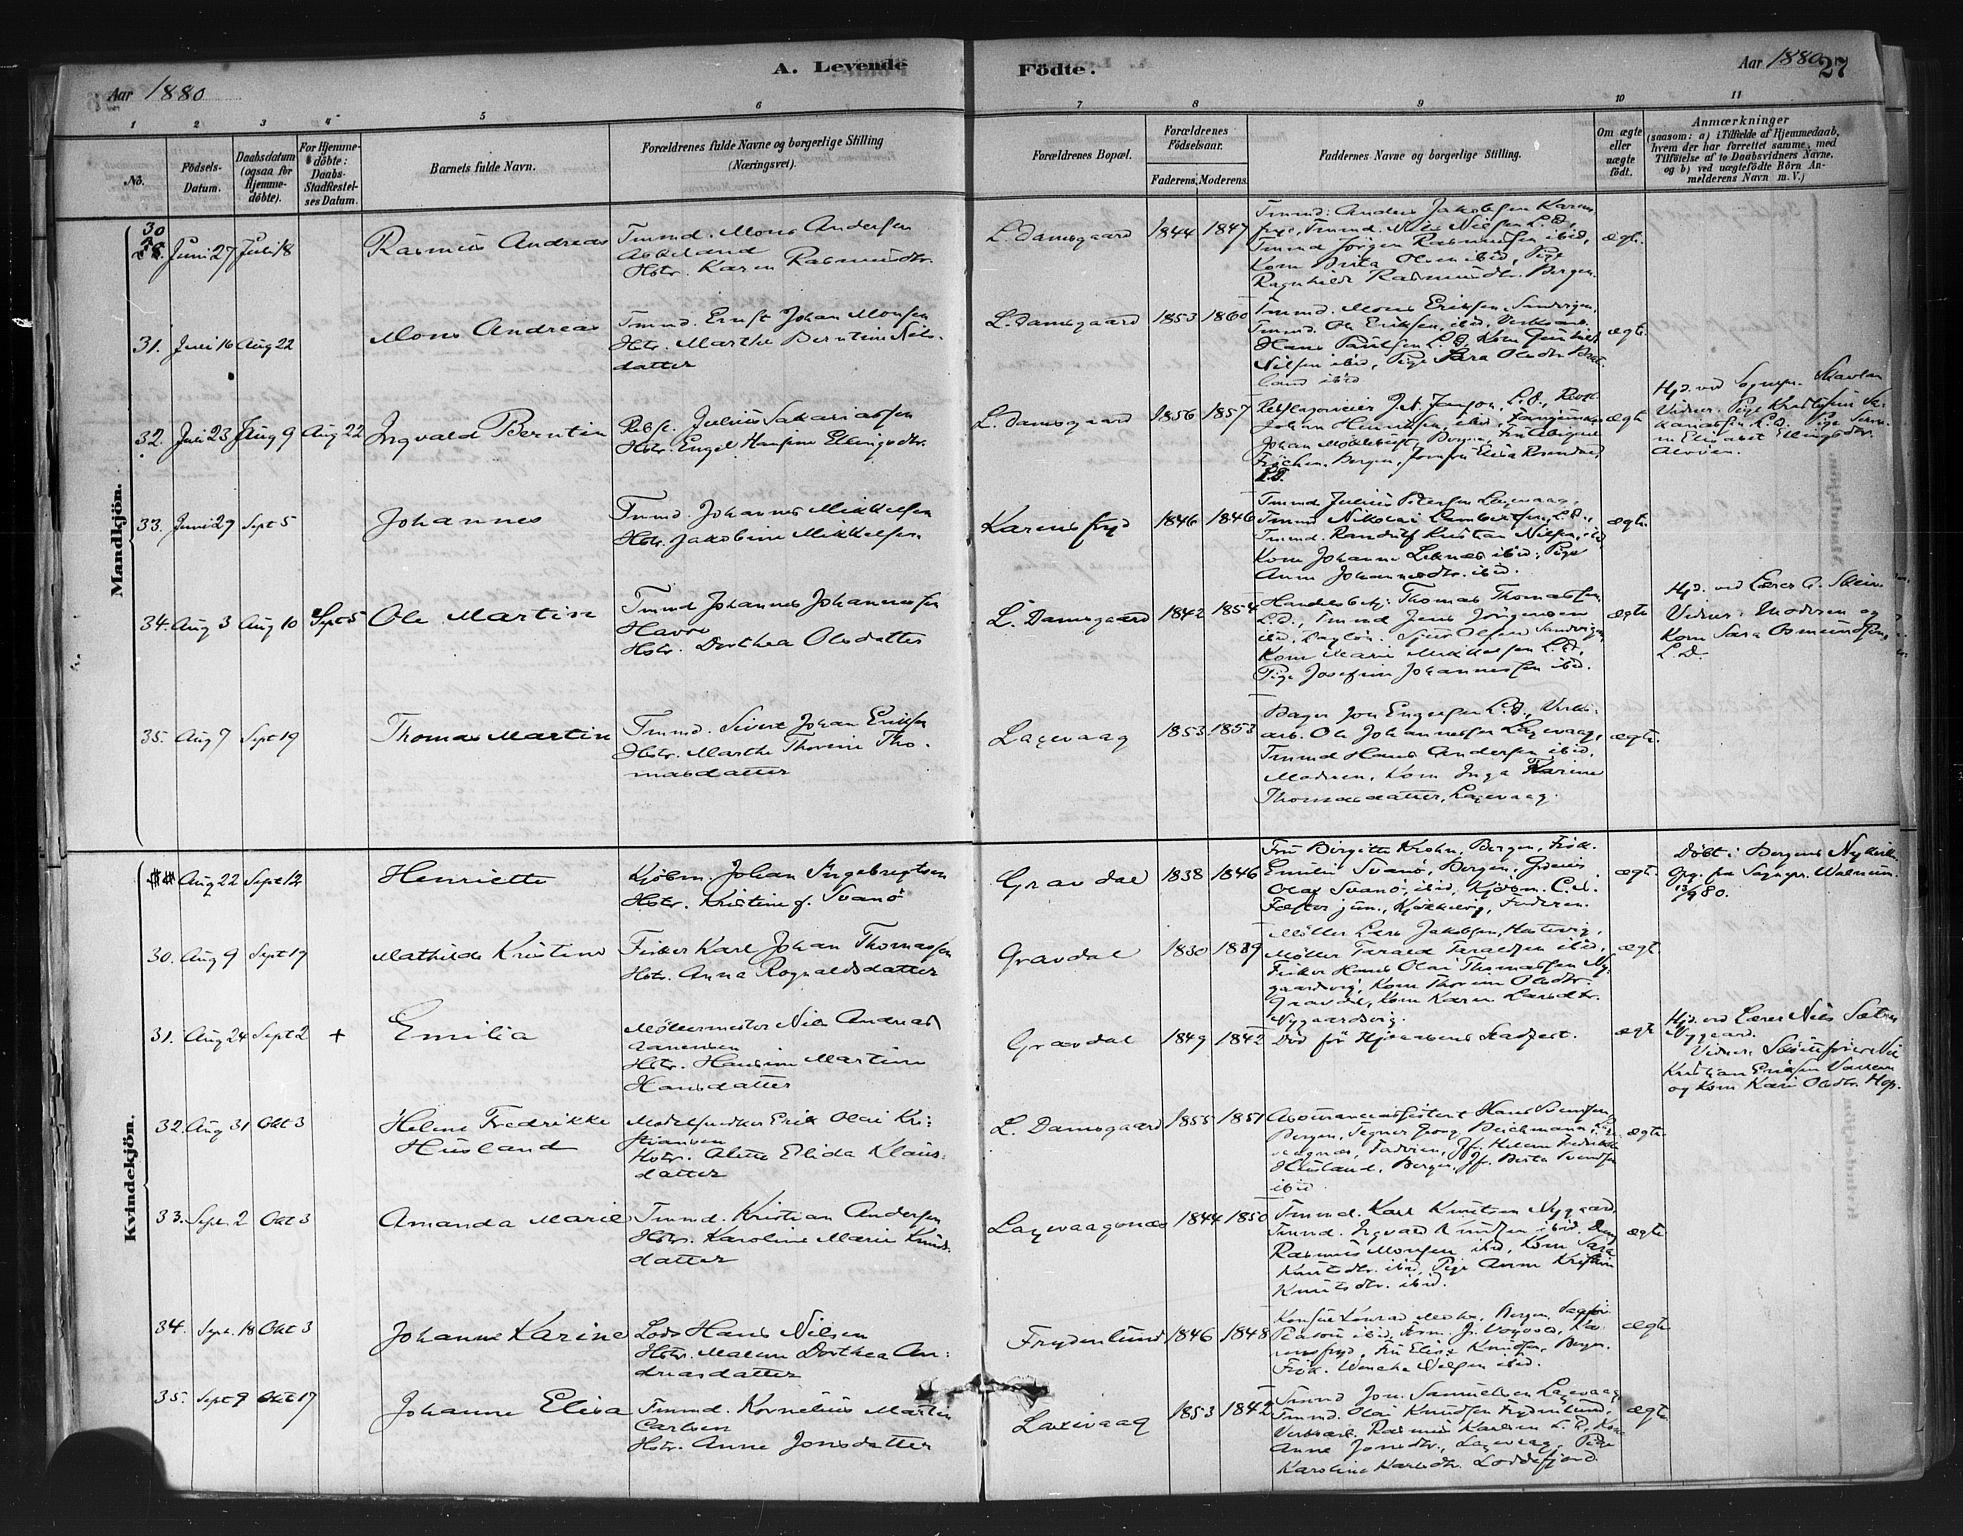 Aar 1880
A. Levende
Födte.
Aar 1880
27
1 2 3 4 5 6 7 8 9 10 11
No.
Födsels-Datum.
Daabsdatum (ogsaa for Hjemme-döbte).
For Hjemme-döbte: Daabs-Stadfestel-ses Datum.
Barnets fulde Navn.
Forældrenes fulde Navne og borgerlige Stilling (Næringsvei).
Forældrenes Bopæl.
Forældrenes Födselsaar.
Faderens. Moderens.
Faddernes Navne og borgerlige Stilling.
Om ægte eller uægte födt.
Anmærkninger
(saasom: a) i Tilfælde af Hjemmedaab, hvem der har forrettet samme, med Tilföielse af to Daabsvidners Navne, og b) ved uægtefödte Börn Anmelderens Navn m. V.)
Mandkjön.
30 Juni 27 Juli 18
Rasmus Andreas
Tmmd. Mons Andersen
Askeland
Hstr. Karen Rasmusdtr.
L. Damsgaard 1844 1847
Tmmd: Anders Jakobsen Karens
fryd, Tmmd. Nils Nilsen L.D.,
Tmmd Jörgen Rasmussen ibid,
Kone Brita Olsen ibid, Pige
Ragnhilde Rasmusdtr. Bergen.
ægte
31. Juli 16 Aug 22
Mons Andreas
Tmmd. Ernst Johan Monsen
Hstr. Marthe Berntine Nils-
datter
L. Damsgaard 1853 1860
Tmmd. Mons Eriksen, Sandvigen
Tmmd. Ole Eriksen, ibid, Verksarb.
Hans Paulsen L.D., Kone Gunhild
Nilsen ibid, Pige Sara Olsdtr
ibid
ægte
32. Juli 23 Aug 9 Aug 22
Ingvald Berntin
Rebsl. Julius Sakariassen
Hstr. Engel Hansine Ellingsdtr.
L. Damsgaard 1856 1857
Johan Henriksen, ibid,
Bergen, Jomfru Elisa Rosendahl
L.D.
ægte
Hjd. ved Sognepr. Skavlan
Vidner: Pige Kristofine Sa-
kariassen L.D. Pige Sevri-
ne Elisabet Ellingsdtr.
Alvöen.
33. Juni 27 Sept 5
Johannes
Tmmd. Johannes Mikkelsen
Hstr. Jakobine Mikkelsen
Karensfryd 1846 1846
Tmmd Julius Petersen Laxevaag,
Tmmd Nikolai Lambertsen, L.D.,
Tmmd. Randulf Kristian Nilsen, ibid,
Kone Johanne Leknes ibid; Pige
Anna Johannesdtr. ibid.
ægte
34. Aug 3 Aug 10 Sept 5
Ole Martin
Tmmd Johannes Johannessen
Havre
Hstr. Dorthea Olsdatter
L. Damsgaard 1842 1854
Handelsbetj. Thomas Thomassen
L.D., Tmmd Jens Jörgensen
ibid, Dagl. Sjur Olsen Sandvigen,
Kone Marie Mikkelsen L.D.,
Pige Josefine Johannessen ibid.
ægte
Hjd. ved Lærer A. Skeie
Vidner: Moderen og
Kone Sara Osmundsen,
L.D.
35. Aug 7 Sept 19
Thomas Martin
Tmmd. Sivert Johan Eriksen
Hstr. Marthe Thorine Tho-
masdatter
Laxevaag 1853 1853
Bager Jon Engesen L.D., Verks-
arb. Ole Johannessen Laxevaag,
Tmmd Hans Andersen ibid,
Moderen, Kone Inga Karine
Thomasdatter, Laxevaag.
ægte.
Kvindekjön.
Aug 22 Sept 12
Henriette
Kjöbm. Johan Ingebregtsen
Hstr. Kristine f. Svanö
Gravdal 1838 1846
Fru Birgitte Krohn, Bergen, Frök.
Emilie Svanö, Bergen,
Olaf Svanö, ibid, Kjöbm. C.M.
jun., Faderen.
ægte.
Döbt i Bergens Nykirke
Opg. fra Sognepr. Walnum
13/9 80.
30. Aug 9 Sept 19
Mathilde Kristine
Fisker Karl Johan Thomassen
Hstr. Anna Rognaldsdatter
Gravdal 1830 1839
Möller Lars Jakobsen,
Möller Tarald Taraldsen ibid,
Fisker Hans Olai Thomassen Ny-
gaardsvig, Kone Thorine Olsdtr.
Gravdal, Kone Karen Larsdtr.
Nygaardsvig.
ægte.
31. Aug 24 Sept 2 +
Emilia
Möllermester Nils Andreas
Aanensen
Hstr. Hansine Martine
Hansdatter
Gravdal 1849 1842
Död för Hjd. Stadfest.
ægte
Hjd. ved Lærer Nils Sætre
Nygaard.
Kristian Eriksen
og Kone Kari Olsdtr. Hop.
32. Aug 31 Okt 3
Helene Fredrikke
Husland
Modelsnedker Erik Olai Kri-
stiansen
Hstr. Alette Elida Klaus-
datter
L. Damsgaard 1855 1851
Hans Svendsen,
Bergen, Tegner Georg Beichmann, Lax-
evaagnes, Faderen, Jfr. Helene Fredrikke
Husland, Bergen, Jfr. Berta Svendsen
ibid
ægte
33. Sept. 2 Okt 3
Amanda Marie
Tmmd. Kristian Andersen
Hstr. Karoline Marie Knuds-
datter
Laxevaagsnes 1844 1850
Tmmd. Karl Knutsen Nygaard.
Tmmd. Ingvald Knudsen ibid. Ung
Rasmus Monsen ibid, Kone Sara
Knutsdtr. ibid, Pige Anne Kristine
Knutsdtr. ibid.
ægte
34. Sept. 18 Okt 3
Johanne Karine
Lods Hans Nilsen
Hstr. Malene Dorthea An-
dreasdatter
Frydenlund 1846 1848
Konsul Konrad Mohr, Bergen,
rensfryd, Fru Elise Knudsen, Bergen.
Frök. Wencke Nilsen ibid.
ægte
35. Sept 9 Okt 17
Johanne Elisa
Tmmd. Kornelius Martin
Carlsen
Hstr. Anne Jonsdatter
Laxevaag 1853 1842
Tmmd Jon Samuelsen Laxevaag
Tmmd. Olai Knudsen Frydenlund,
Verksarb. Rasmus Karlsen L.D., Kone
Anne Jonsdtr., Laxevaag, Pige
Karoline Karlsdtr. Loddefjord.
ægte